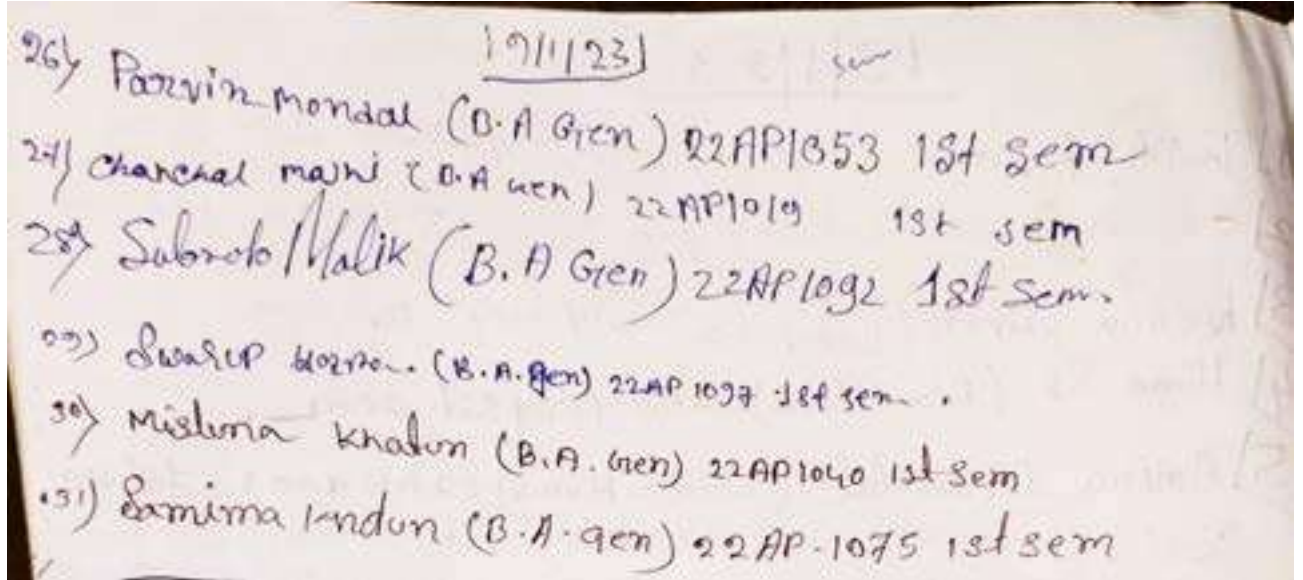 19/1/23
26) Parvin Mondal (B.A Gen) 22AP1053 1st sem
27) Chanchal majhi (B.A Gen) 22AP1019 1st sem
28) Subroto Malik (B.A Gen) 22AP1092 1st sem.
29) Swarup (B.A. gen) 22AP 1097 1st sem.
30) Mislima Khatun (B.A. Gen) 22AP1040 1st Sem
31) Samima (B.A. gen) 22AP-1075 1st sem